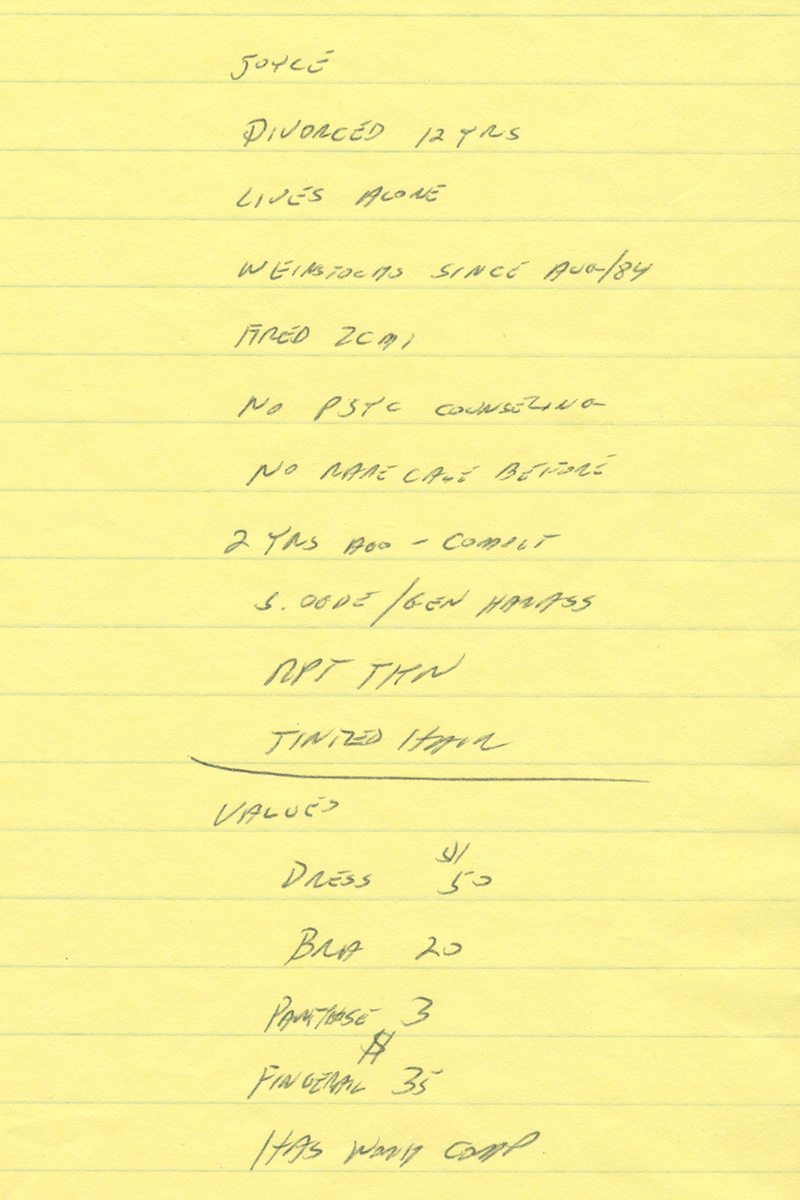 JOYCE
DIVORCED 12 YRS
LIVES ALONE
WEINSTOCKS SINCE AUG/84
FIRED ZCMI
NO PSYC COUNSELING
NO RAPE CASE BEFORE
2 YRS AGO - COMPLT
/GEN HARASS
RPT THN
TINTED HAIR
VALUES
DRESS $50
BRA 20
PANTYHOSE 3
FINGERNAIL $35
HAS WORK COMP